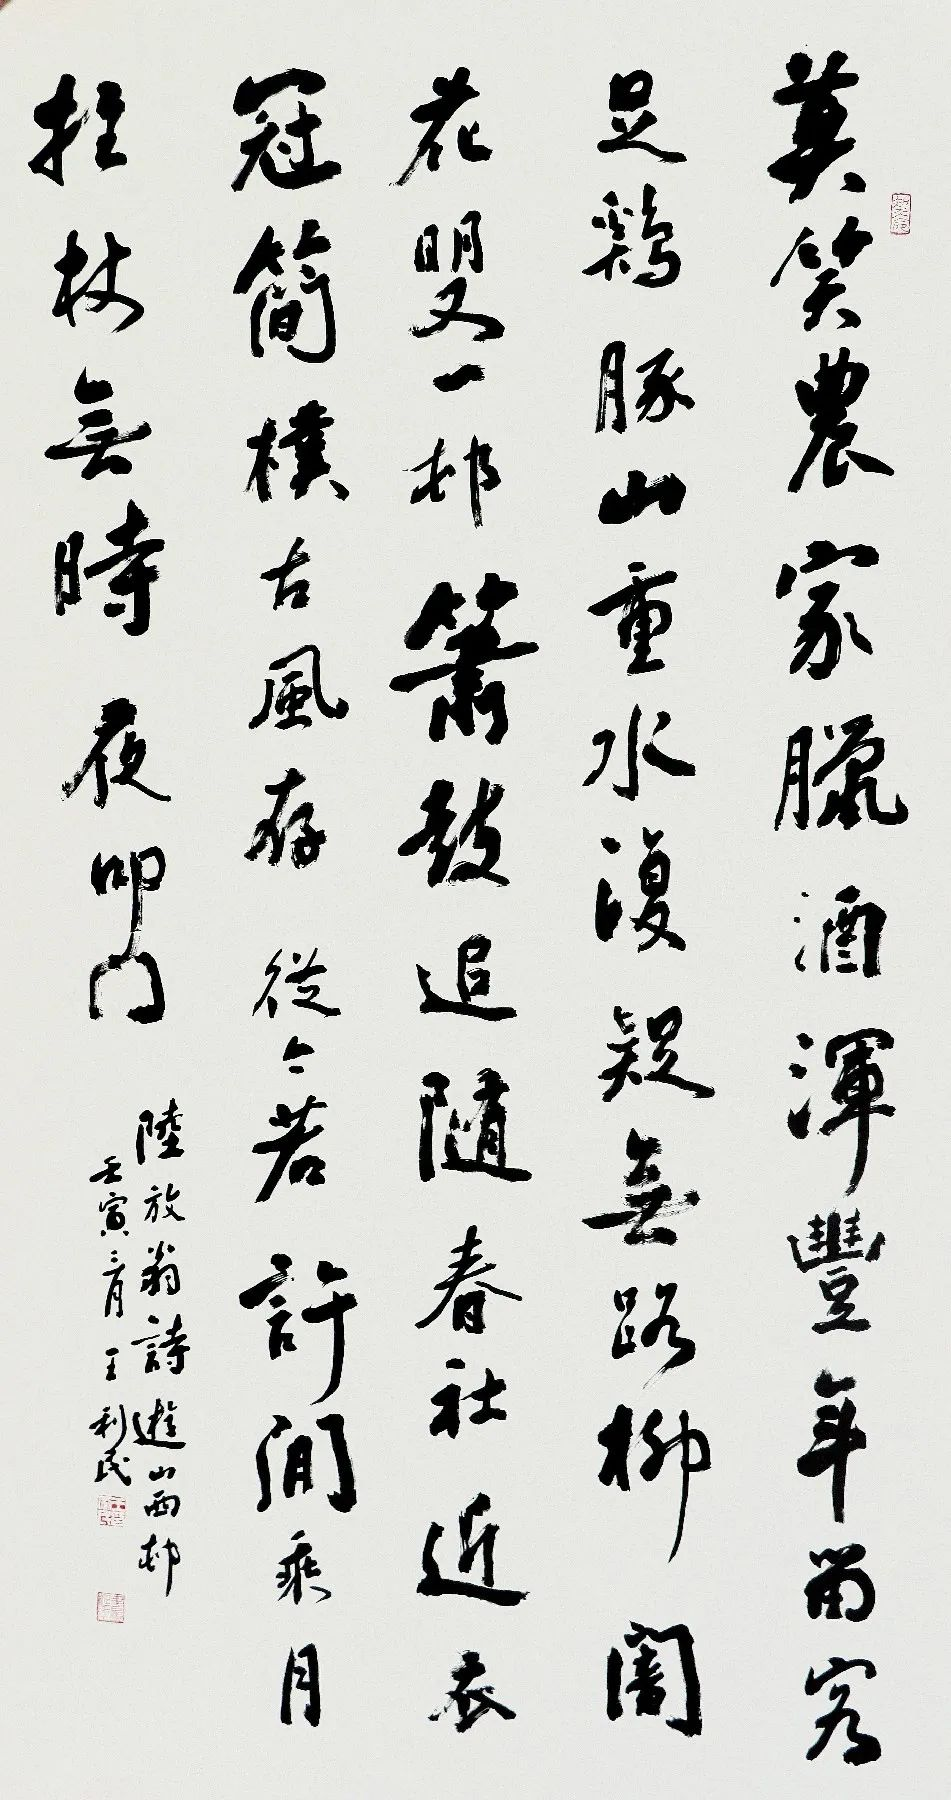 莫笑農家臘酒渾豐年留客
足鷄豚山重水複疑無路柳闇
花明又一邨簫鼓追隨春社近衣
冠簡樸古風存從今若許閒乘月
拄杖無時夜叩门
陸放翁詩遊山西邨
壬寅三月王利民